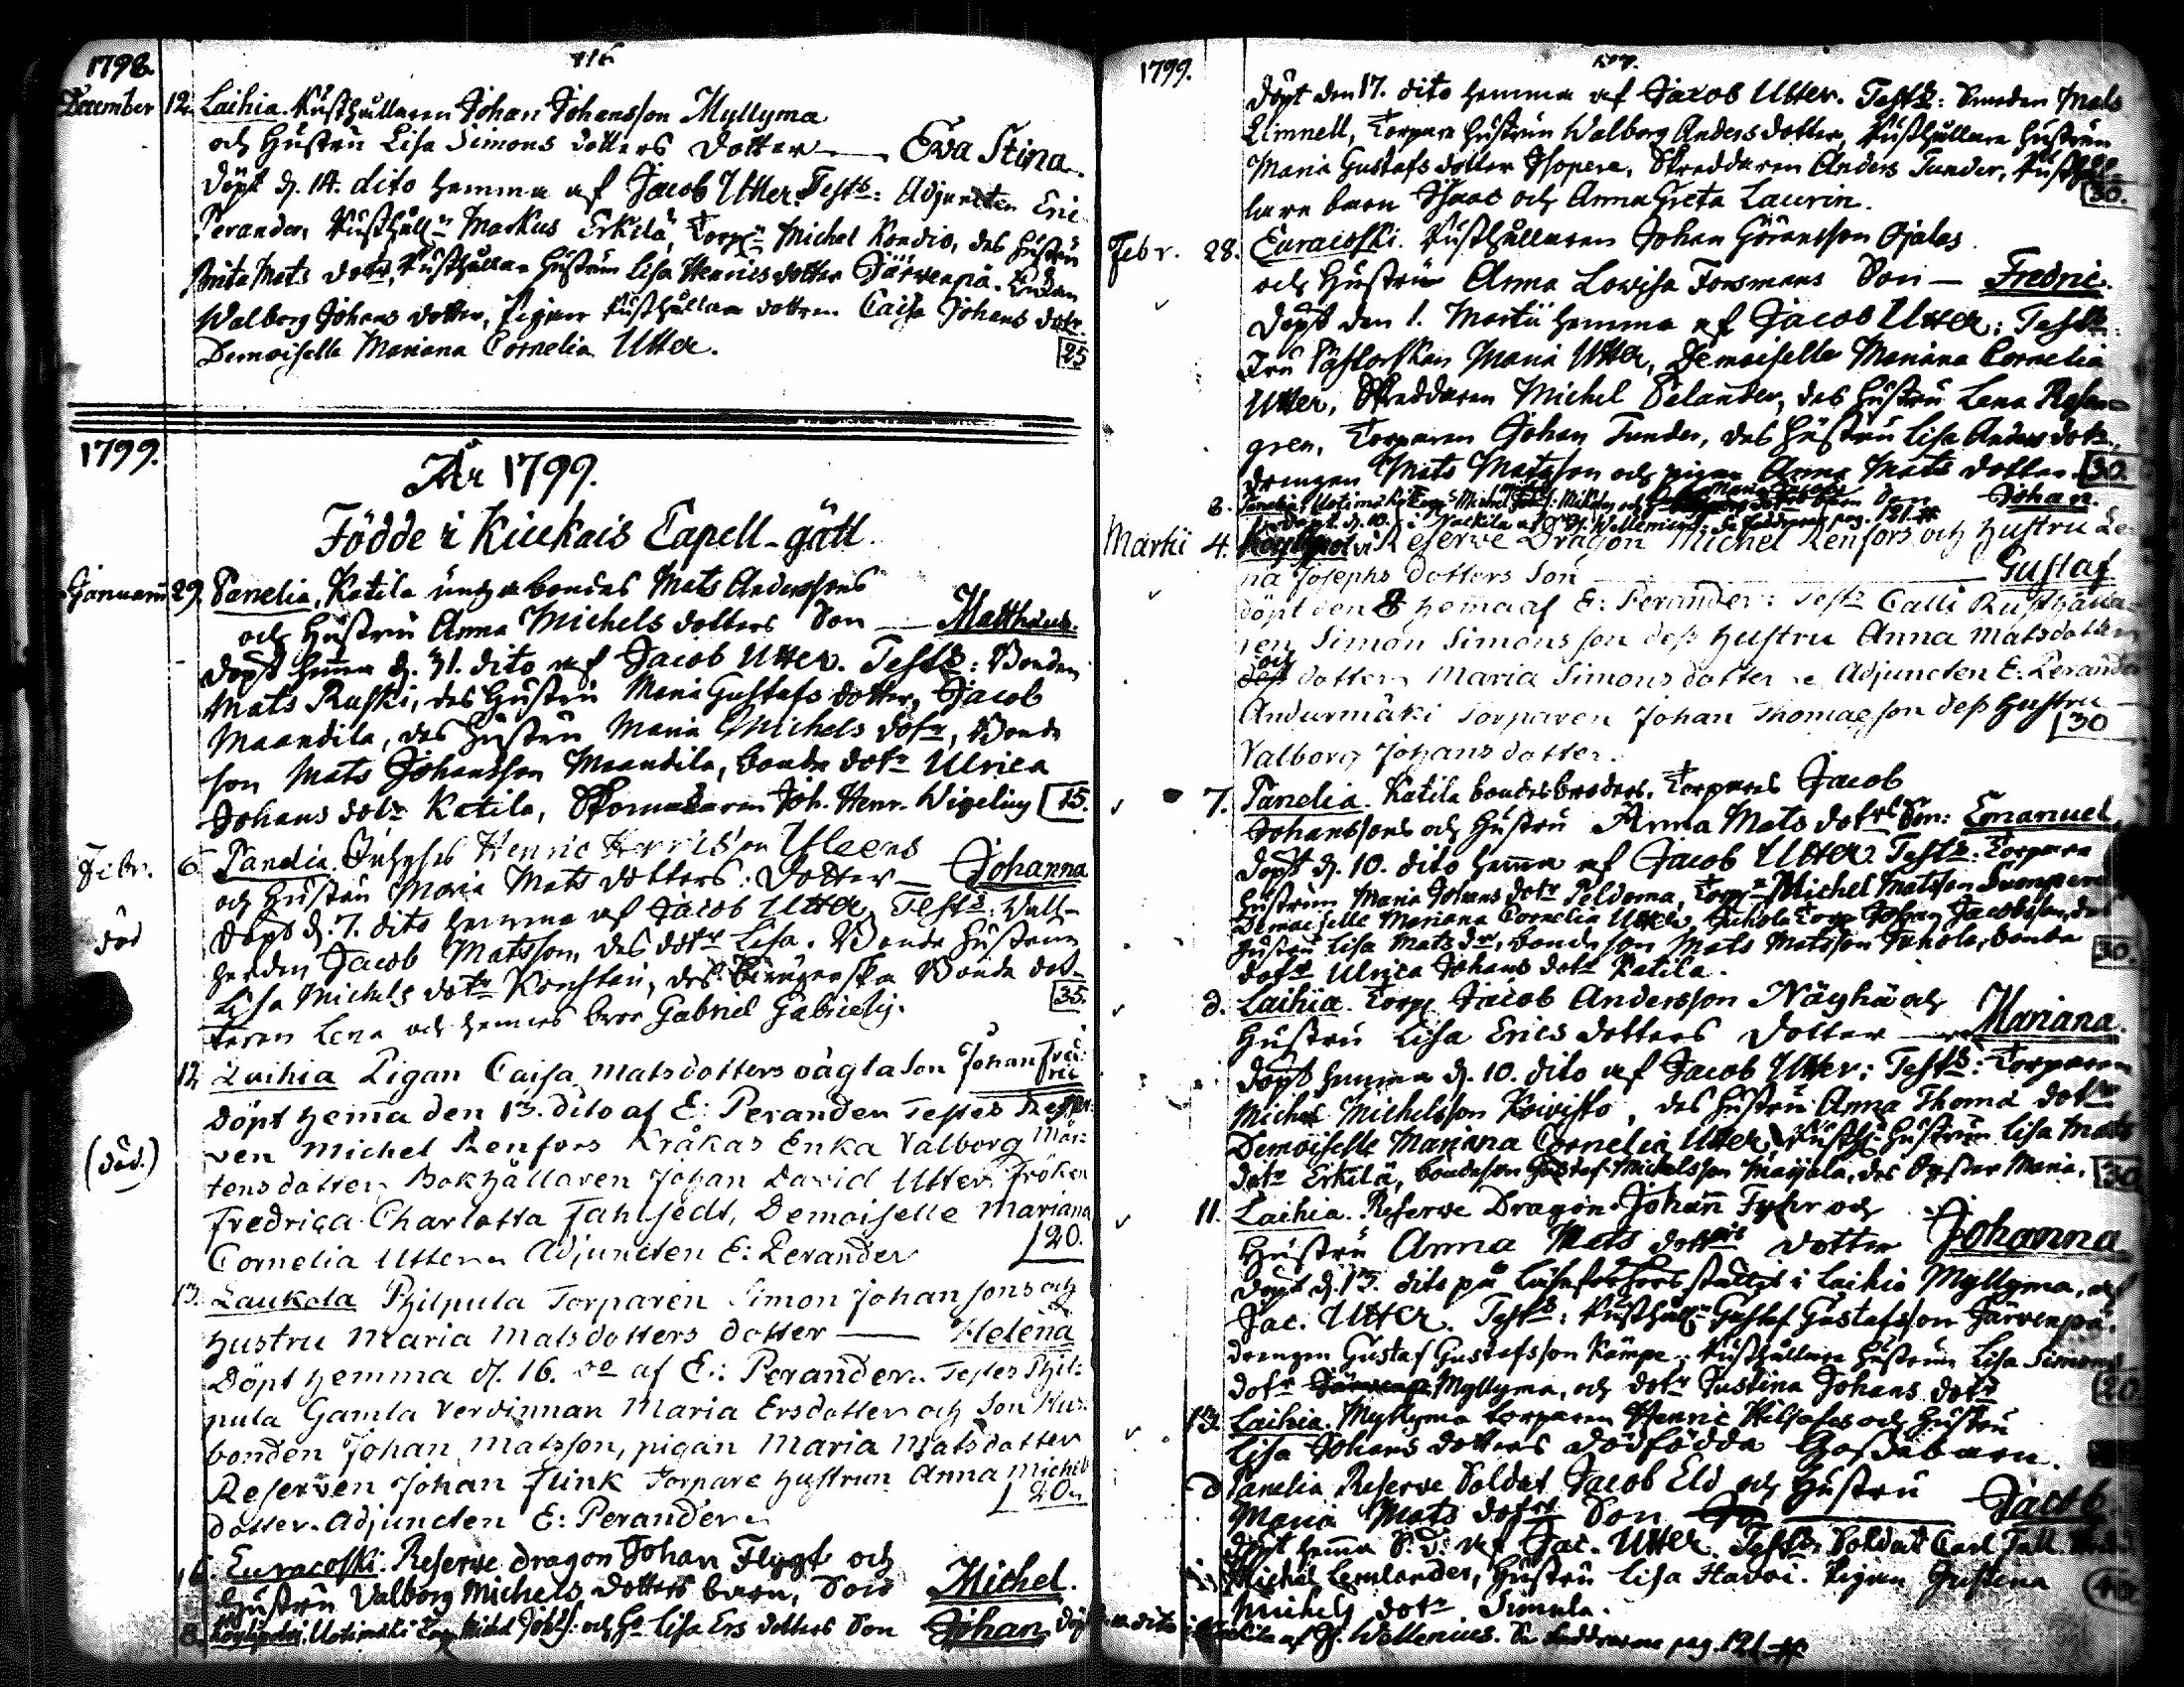 1798.
116
December 12. Laihia. Rusthållaren Johan Johansson Myllyma
och Hustru Lisa Simons dotters dotter — Ewa Stina.
döpt d. 14. dito hemma af Jacob Utter. Test: Adjuncten Eric
Perander, Rusthåll Markus Erkilä, Torp Michel Kondio, des hustru
Brita Mats dotr, Rusthållare hustrun Lisa Henrics dotter Järvenpä. Enkan
Walborg Johans dotter, Pigan Rusthållare dottren Caisa Johans dotr
Demoiselle Mariana Cornelia Utter. 25
1799.
År 1799.
Födde i Kiukais Capell-gäll
Januarii 29. Panelia, Katila unga bondes Mats Anderssons
och Hustru Anna Michels dotters Son — Matthæus.
döpt hema d. 31. dito af Jacob Utter. Test: Bonden
Mats Ruski, des Hustru Maria Gustafs dotter, Jacob
Maandila, des Hustru Maria Michels dotr, Bonde
son Mats Johansson Maandila, bonde dotr Ulrica
Johans dotr Katila, Skomakaren Joh. Henr. Wigelius 15.
Febr. 6. Panelia. Inhyses Henric Henricsson Uleens
och Hustru Maria Mats dotters: Dotter — Johanna
död
döpt d. 7. dito hemma af Jacob Utter. Test: Vall-
herden Jacob Matsson, des dotr Lisa. Bonde hustrun
Lisa Michels dotr Konstari, des Bonde dot-
teren Lena och hennes bror Gabriel Gabriels. 35.
12 Laihia Pigan Caisa Matsdotters oägta Son Johan Fred-
ric
döpt hema den 13. dito af E: Perander Testes Reser-
(död.)
ven Michel Renfors Kråkas Enka Valborg Mår-
tens dotter Bokhållaren Johan David Utter Fröken
Fredrica Charlotta Fahlstedt, Demoiselle Mariana
Cornelia Utter Adjuncten E: Perander 20.
13. Laukola Philpula Torparen Simon Johanssons och
Hustru Maria Matsdotters dotter — Helena
Döpt hemma d. 16. do af E: Perander. Testes Phil-
pula Gamla Verdinnan Maria Ersdotter och Son Hus-
bonden Johan Matsson, pigan Maria Matsdotter
Reserven Johan Flink Torpare hustrun Anna Michels
dotter. Adjuncten E: Perander 20
16. Euracoski. Reserve dragon Johan Flygt och
Hustru Valborg Michels dotters barn, Son Michel.
8. Uotimäki Torp Michel och H: Lisa Ers dotters Son Johan, döpt dito i Nackila af J. Wellenius. Se faddrarne pag. 121.
1799.
döpt den 17. dito hemma af Jacob Utter. Test: Smeden Mats
Limnell, Torpare hustrun Walborg Anders dotter, Rusthållare hustrun
Maria Gustafs dotter Isopere, Skreddaren Anders Tunder, Rusthål-
lare barn Isaac och Anna Greta Laurin. 30.
Febr. 28. Euracoski. Rusthållaren Johan Göransson Ojalas
och Hustrun Anna Lovisa Forsmans Son — Fredric.
döpt den 1. Martii hemma af Jacob Utter: Test:
Fru Pastorskan Maria Utter, Demoiselle Mariana Cornelia
Utter, Skreddaren Michel Selander, des hustru Lena Rosen-
gren, Torparen Johan Tunder, des hustru Lisa Anders dotr,
drengen Mats Matsson och pigan Anna Mats dotter. 30.
8. Panelia, Uotimäki Torp Michel Johan.
döpt d. 10. i Nackila af J. Wellenius. Se faddrarne pag. 121.
Martii 4. Reserve Dragon Michel Renfors och Hustru Le-
na Josephs dotters Son — Gustaf
döpt den 8 hema af E: Perander: Test Calli Rusthålla-
ren Simon Simonsson dess hustru Anna Matsdotter
och dotter Maria Simonsdotter Adjuncten E. Perander
Andurmäki Torparen Johan Thomasson dess hustru
Valborg Johans dotter. 30
7. Panelia. Katila bondesbroders, Torparens Jacob
Johanssons och Hustru Anna Mats dotrs Son: Emanuel
döpt d. 10. dito hema af Jacob Utter. Test: Torpare
hustrun Maria Johans dotr Peldoma, Torp Michel Matsson
Demoiselle Mariana Cornelia Utter, Torp Johan Jacobsson, des
hustru Lisa Mats dr, bonde son Mats Matsson Juhola, bonde
dotr Ulrica Johans dotr Katila. 30.
d. Laihia. Torp Jacob Andersson Näyhä och
Hustru Lisa Erics dotters Dotter — Mariana.
döpt hemma d. 10. dito af Jacob Utter: Test: Torparen
Michel Michelsson Koivisto, des hustru Anna Thoma dotr
Demoiselle Mariana Cornelia Utter, Rusth: hustrun Lisa Mats
dotr Erkilä, bondeson Gustaf Michelsson Maijala, des Syster Maria. 30
11. Laihia. Reserve Dragon Johan Fyhr och
Hustru Anna Mats dotters dotter Johanna
döpt d. 13. dito på Läseförhörs stället i Laihia Myllyma, af
Jac. Utter. Test: Rusthåll Gustaf Gustafsson Järvenpä.
drengen Gustaf Gustafsson Kämpe, Rusthållare hustrun Lisa Simons
dotr Myllyma, och dotr Justina Johans dotr 20
13. Laihia. Myllyma torparen Henric och Hustru
Lisa Johans dotters dödfödda Gossebarn.
d Panelia Reserve Soldat Jacob Eld och Hustru
Maria Mats dotrs Son — Jacob
döpt hema S. D. af Jac. Utter. Test: Soldat Carl Tall.
Michel Lemlander, Hustru Lisa Havoi. Pigan Justina
Michels dotr Simula.